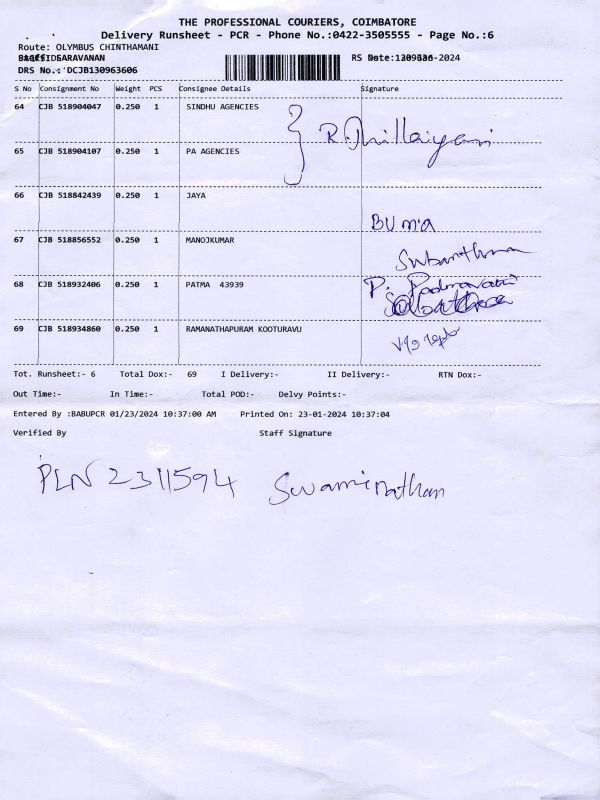 THE PROFESSIONAL COURIERS, COIMBATORE
Delivery Runsheet - PCR - Phone No.:0422-3505555 - Page No.:6
Route: OLYMBUS CHINTHAMANI
SARAVANAN RS Date: -2024
DRS No.: DCJB130963606
S No Consignment No Weight PCS Consignee Details Signature
64 CJB 518904047 0.250 1 SINDHU AGENCIES
65 CJB 518904107 0.250 1 PA AGENCIES
66 CJB 518842439 0.250 1 JAYA
67 CJB 518856552 0.250 1 MANOJKUMAR
68 CJB 518932406 0.250 1 PATMA 43939 P. Padmavathi
69 CJB 518934860 0.250 1 RAMANATHAPURAM KOOTURAVU
Tot. Runsheet:- 6 Total Dox:- 69 I Delivery:- II Delivery:- RTN Dox:-
Out Time:- In Time:- Total POD:- Delvy Points:-
Entered By :BABUPCR 01/23/2024 10:37:00 AM Printed On: 23-01-2024 10:37:04
Verified By Staff Signature
PLN 2311594 Swaminathan